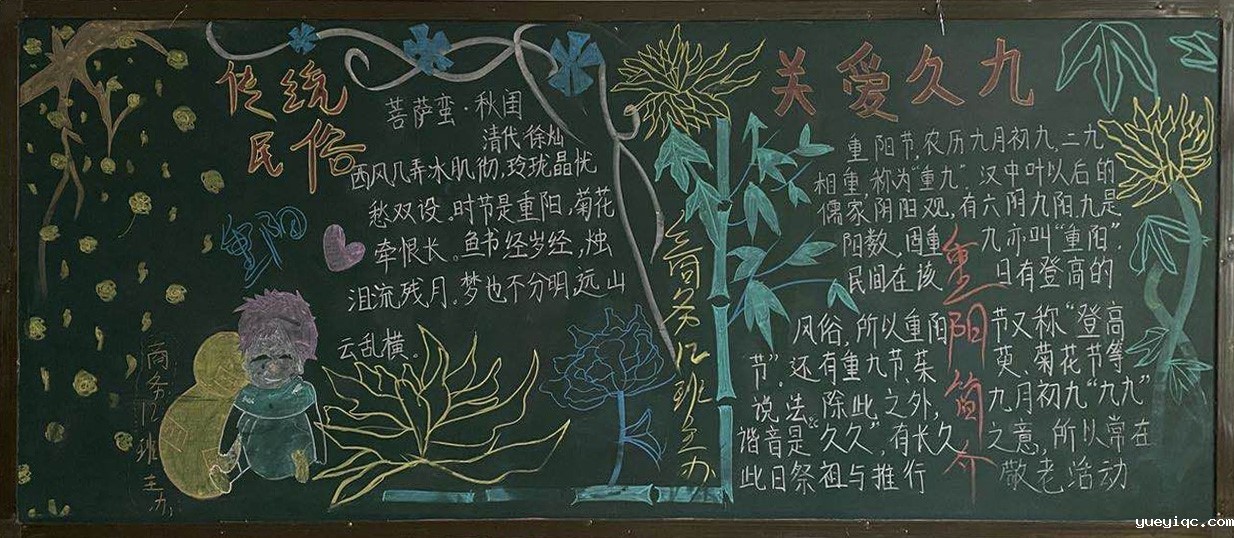 传统
民俗
菩萨蛮·秋闺
清代·徐灿
西风几弄冰肌彻,玲珑晶忧
愁双设。时节是重阳,菊花
牵恨长。鱼书经岁经,烛
泪流残月。梦也不分明,远山
云乱横。
重阳
商务12班主办
商务12班主办
关爱久九
重阳节,农历九月初九,二九
相重,称为"重九"。汉中叶以后的
儒家阴阳观,有六阴九阳。九是
阳数,固重九亦叫"重阳"。
民间在该日有登高的
风俗,所以重阳节又称"登高
节"。还有重九节、茱萸、菊花节等
说法。除此之外,九月初九"九九"
谐音是"久久",有长久之意,所以常在
此日祭祖与推行敬老活动
重阳简介
yueyiqc.com